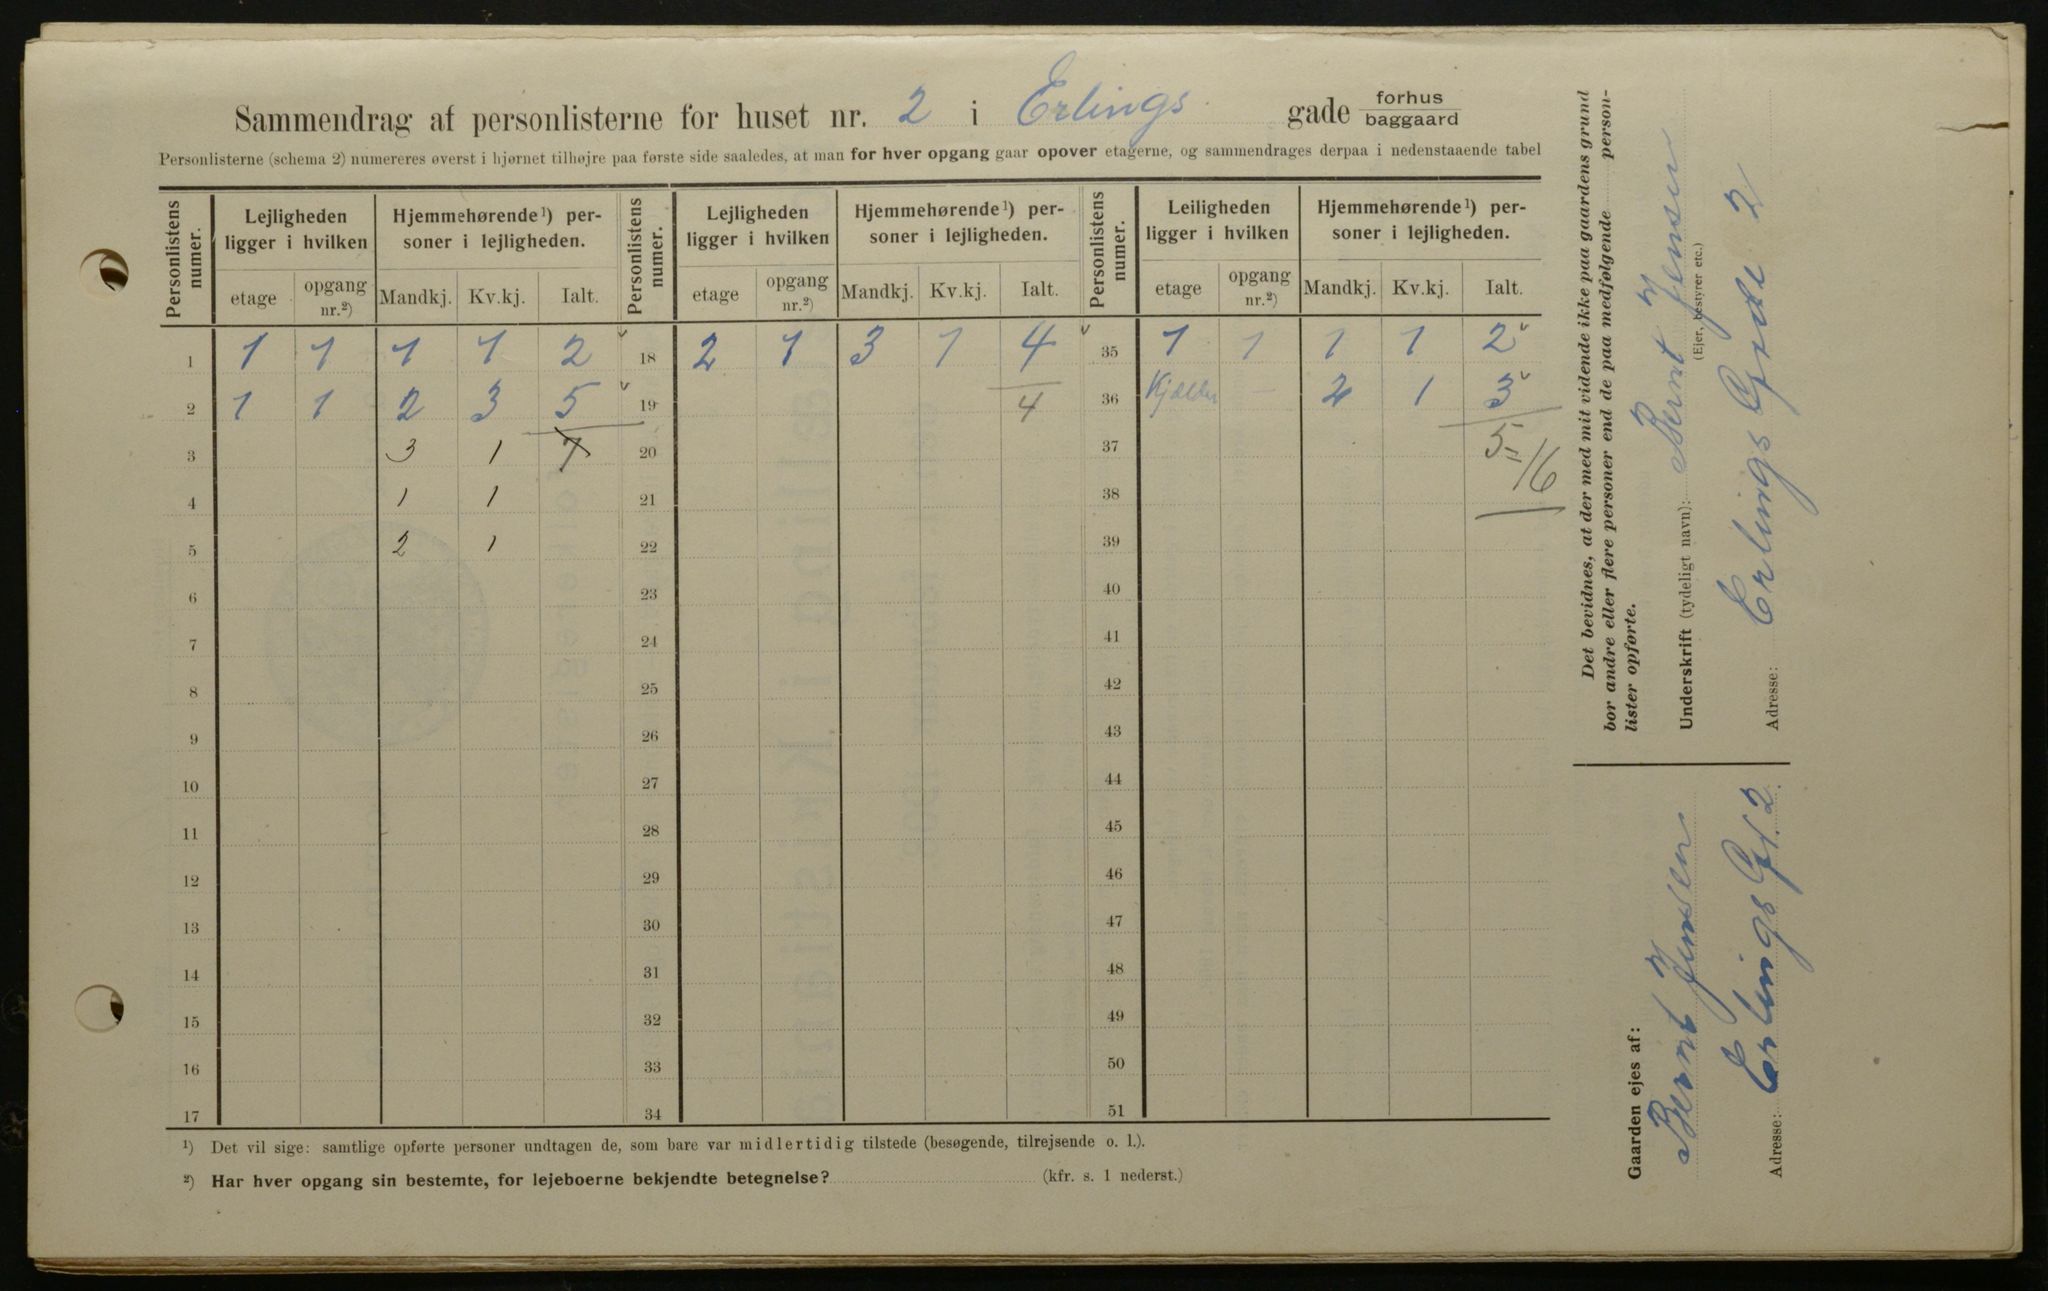 Sammendrag af personlisterne for huset nr. 2 i Erlings gade forhus baggaard
Personlisterne (schema 2) numereres øverst i hjørnet tilhøjre paa første side saaledes, at man for hver opgang gaar opover etagerne, og sammendrages derpaa i nedenstaaende tabel
Personlistens numer. Lejligheden ligger i hvilken Hjemmehørende¹) personer i lejligheden. Personlistens numer. Lejligheden ligger i hvilken Hjemmehørende¹) personer i lejligheden. Personlistens numer. Leiligheden ligger i hvilken Hjemmehørende¹) personer i lejligheden.
etage opgang nr.²) Mandkj. Kv.kj. Ialt. etage opgang nr.²) Mandkj. Kv.kj. Ialt. etage opgang nr.²) Mandkj. Kv.kj. Ialt.
1 1 1 1 1 2 18 2 1 3 1 4 35 1 1 1 1 2
2 1 1 2 3 5 19 4 36 Kjælder — 2 1 3
3 3 1 7 20 37 5
4 1 1 21 38 16
5 2 1 22 39
6 23 40
7 24 41
8 25 42
9 26 43
10 27 44
11 28 45
12 29 46
13 30 47
14 31 48
15 32 49
16 33 50
17 34 51
¹) Det vil sige: samtlige opførte personer undtagen de, som bare var midlertidig tilstede (besøgende, tilrejsende o. l.).
²) Har hver opgang sin bestemte, for lejeboerne bekjendte betegnelse? (kfr. s. 1 nederst.)
Det bevidnes, at der med mit vidende ikke paa gaardens grund
bor andre eller flere personer end de paa medfølgende personlister opførte.
Underskrift (tydeligt navn): Bernt Jensen
(Ejer, bestyrer etc.)
Adresse: Erlings Gade 2
Gaarden ejes af:
Bernt Jensen
Adresse: Erlings Gd. 2